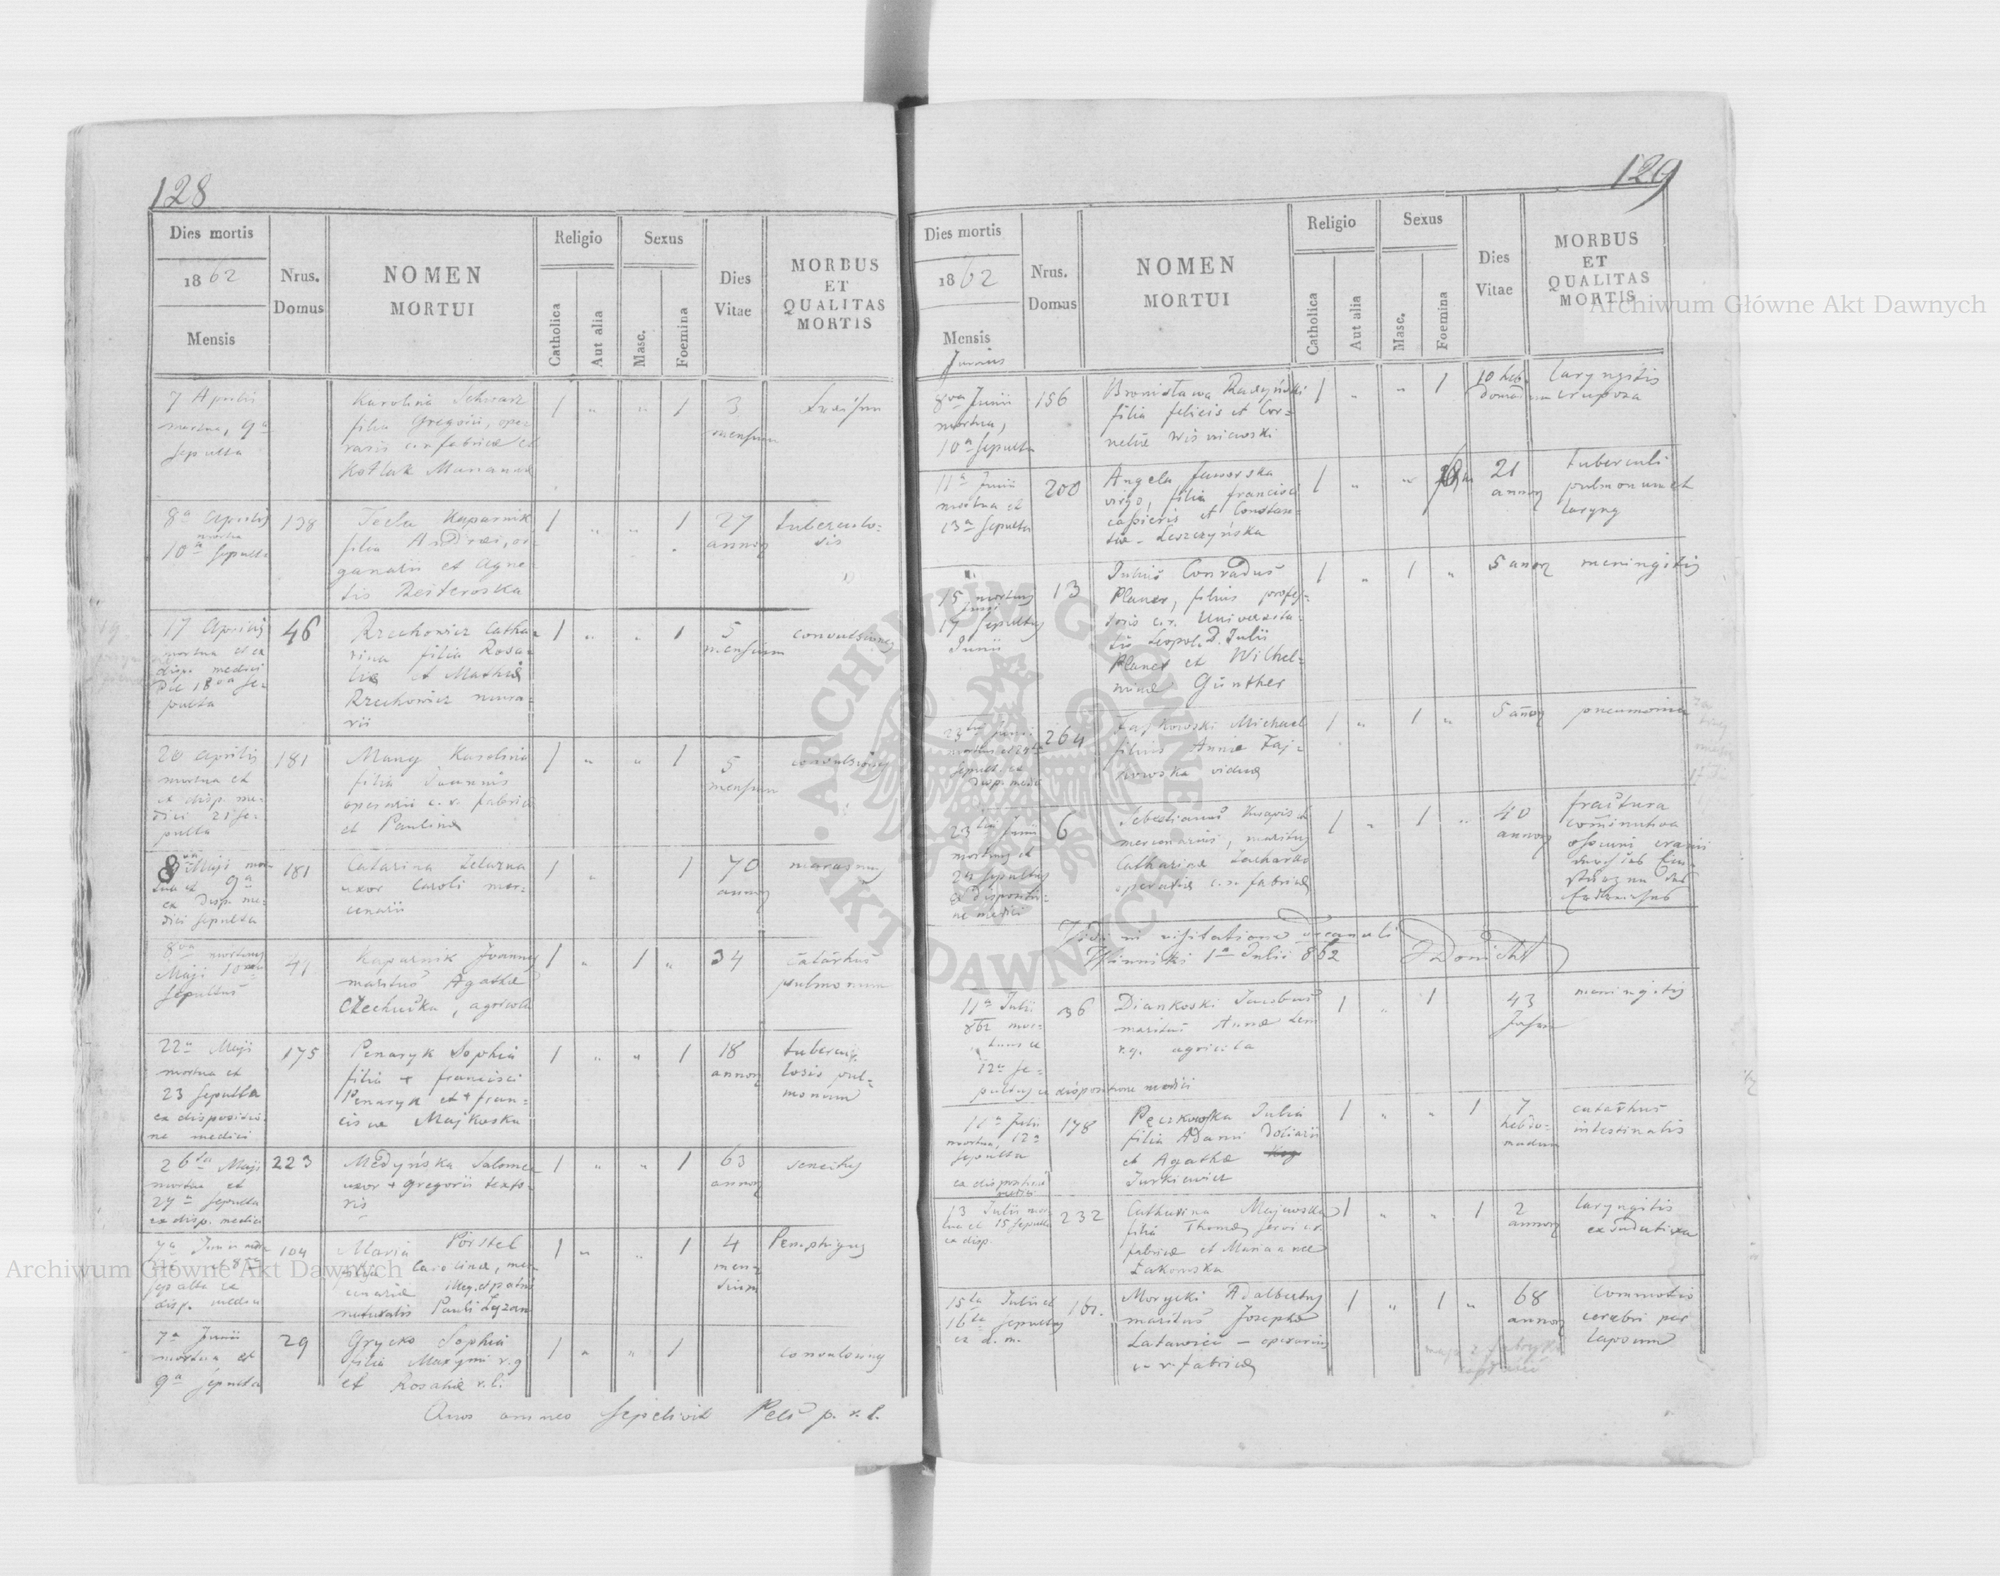 128
Dies mortis
1862
Mensis
Nrus.
Domus
NOMEN
MORTUI
Religio
Catholica
Aut alia
Sexus
Masc.
Foemina
Dies
Vitae
MORBUS
ET
QUALITAS
MORTIS
7 Aprilis
mortua, 9a
sepulta
Karolina Schwarz
filia Gregorii, ope-
rarii c. r. fabricae et
Kotlak Marianna
1 " " 1
3
mensium
8a Aprilis
mortua
10a sepulta
138
Tecla Kaparnik
filia Andreae, or-
ganarii et Agne-
tis
1 " " 1
27
annor
tuberculo-
sis
17 Aprilis
mortua et ex
disp. medici
die 18va se-
pulta
46
Rzechowicz Catha-
rina filia Rosa-
liae et Mathiae
Rzechowicz mura-
rii
1 " " 1
5
mensium
convulsiones
20 Aprilis
mortua et
ex disp. me-
dici 21 se-
pulta
181
Many Karolina
filia Joannis
operarii c. r. fabricae
et Paulina
1 " " 1
5
mensium
convulsiones
8va Maji mor-
tua et 9a
ex disp. me-
dici sepulta
181
Catarina Zelazna
uxor Caroli mer-
cenarii
1 " 1
70
annor
marasmus
8va mortuus
Maji 10ma
sepultus
41
Kaparnik Joannes
maritus Agathae
Czechucka, agricola
1 " 1 "
34
catarhus
pulmonum
22a Maji
mortua et
23 sepulta
ex dispositio-
ne medici
175
Penaryk Sophia
filia + Francisci
Penaryk et + Fran-
ciscae Majkoska
1 " " 1
18
annor
tubercu-
losis pul-
monum
26ta Maji
mortua et
27a sepulta
ex disp. medici
223
Medyńska Salomea
uxor + Gregorii texto-
ris
1 " " 1
63
annor
senectus
7a Junii
et 8va
sepulta ex
disp. medici
104
Maria Pörstel
filia Carolinae, mer-
cenariae illeg. et patris
naturalis Pauli
1 " " 1
4
men-
sium
Pemphigus
7a Junii
mortua et
9a sepulta
29
Grycko Sophia
filia Maxymi r. g.
et Rosaliae r. l.
1 " " 1
convulsiones
Quos omnes sepelivit p. r. l.
129
Dies mortis
1862
Mensis
Junius
Nrus.
Domus
NOMEN
MORTUI
Religio
Catholica
Aut alia
Sexus
Masc.
Foemina
Dies
Vitae
MORBUS
ET
QUALITAS
MORTIS
8va Junii
mortua,
10a sepulta
156
Bronisława Radyński
filia Felicis et Cor-
neliae Wiśniewski
1 " " 1
10 heb-
domadum
laryngitis
cruposa
11a Junii
mortua et
13a sepulta
200
Angela Jaworska
virgo, filia Francisci
cassieris et Constan-
tiae - Leszczyńska
1 " "
21
annor
tuberculi
pulmonum et
laryng
15 mortuus
Junii
17 sepultus
Junii
13
Julius Conradus
Planer, filius profes-
soris c. r. Universita-
tis Leopol. D. Julii
Planer et Wilhel-
minae Günther
1 " 1 "
5 annor
meningitis
264
Michael
filius Annae Zaj-
viduae
1 " 1 "
5 annor
pneumonia
23tia Junii
mortuus et
24 sepultus
ex dispositio-
ne medici
6
Sebestianus
mercenarius, maritus
Catharinae
operariae c. r. fabricae
1 " 1 "
40
annor
fractura
cominutiva
ossium cranii
Vidi in visitatione decanali
Winniki 1a Julii 862
11a Julii
862 mor-
tuus et
12a se-
pultus ex dispositione medici
36
Diankoski Jacobus
maritus Annae
r. g. agricola
1 " 1
43
meningitis
11a Julii
mortua, 12a
sepulta
ex dispositione
medici
178
Pęczkowska Julia
filia Adami doliarii
et Agathae
Jurkiewicz
1 " " 1
7
hebdo-
madum
catarhus
intestinalis
13 Julii mor-
tua et 15 sepulta
ex disp.
232
Catharina Majewska
filia Thomae servi c. r.
fabricae et Mariannae
Żakowska
1 " " 1
2
annor
laryngitis
exsudativa
15ta Julii et
16ta sepultus
ex d. m.
161.
Morycki Adalbertus
maritus Josepha
- operarius
c. r. fabricae
1 " 1 "
68
annor
commotio
cerebri per
lapsum
Archiwum Główne Akt Dawnych
Archiwum Główne Akt Dawnych
ARCHIWUM GŁÓWNE
AKT DAWNYCH